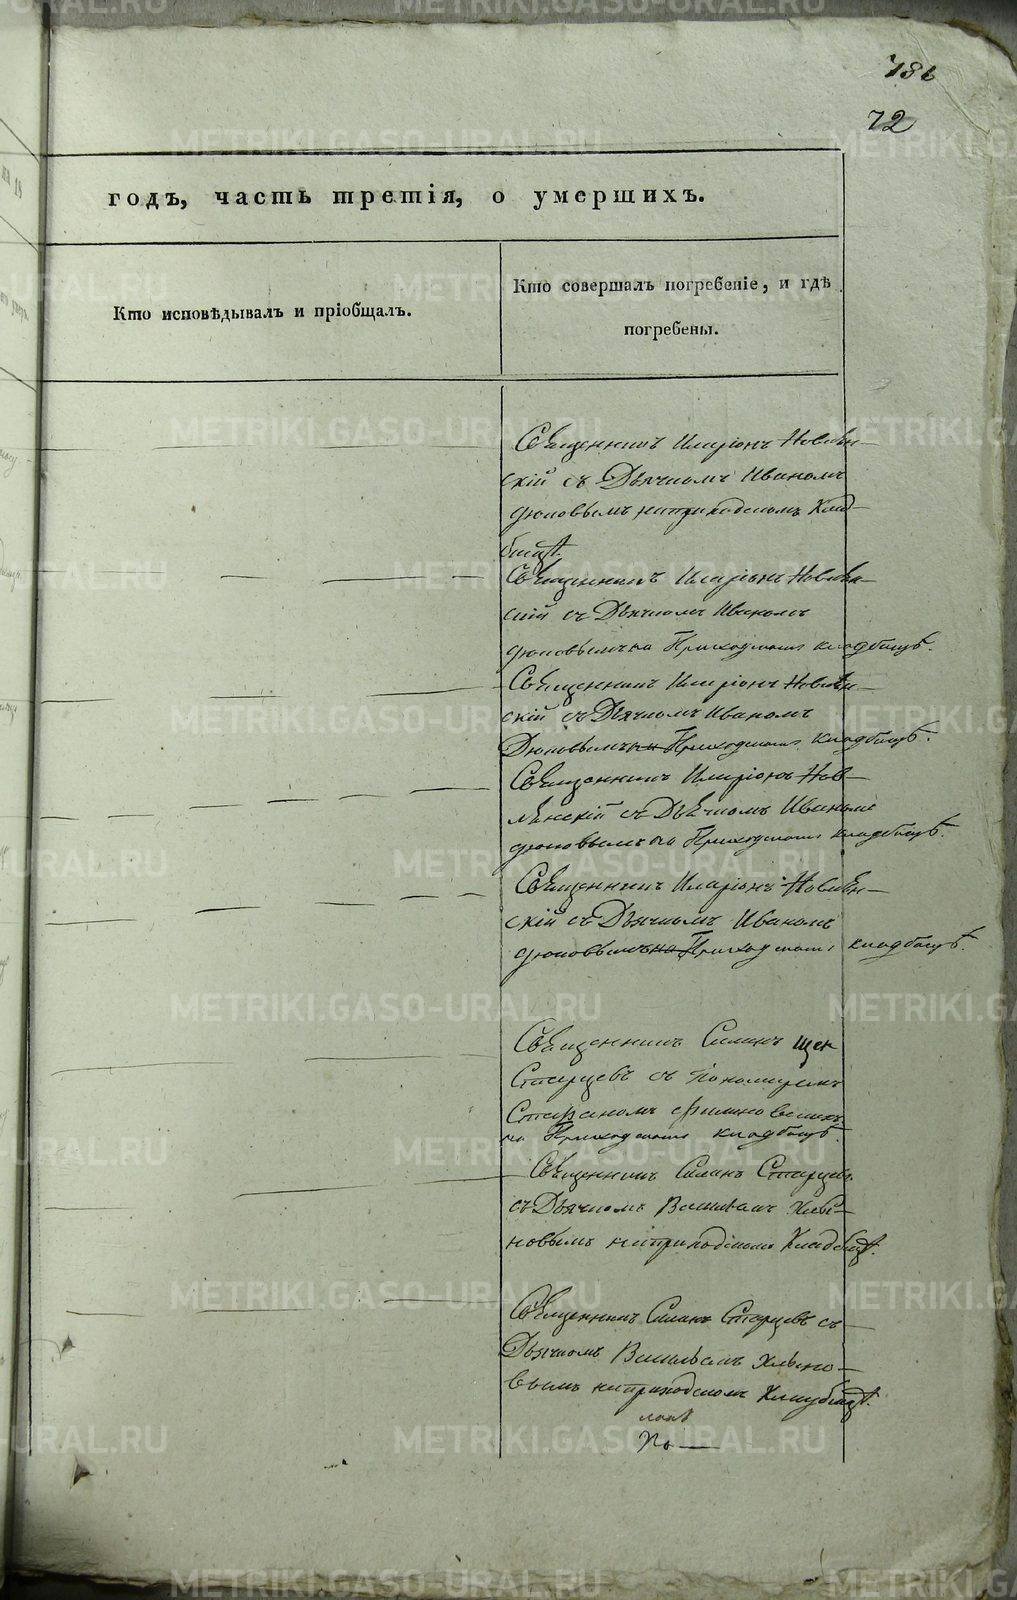 72
годъ, часть третія, о умершихъ.
Кто исповѣдывалъ и пріобщалъ.
Кто совершалъ погребеніе, и гдѣ
погребены.
Священникъ Иларіонъ Новлян-
скій съ Дьячкомъ Иваномъ
на приходскомъ Клад-
бищѣ.
Священникъ Иларіонъ Новлян-
скій съ Дьячкомъ Иваномъ
на Приходскомъ кладбищѣ.
Священникъ Иларіонъ Новлян-
скій съ Дьячкомъ Иваномъ
на Приходскомъ кладбищѣ.
Священникъ Иларіонъ Нов-
лянскій съ Дьячкомъ Иваномъ
на Приходскомъ кладбищѣ.
Священникъ Иларіонъ Новлян-
скій съ Дьячкомъ Иваномъ
на Приходскомъ кладбищѣ.
Священникъ Симонъ
Старцевъ съ Пономаремъ
Стефаномъ
на Приходскомъ кладбищѣ.
Священникъ Симонъ Старцевъ
съ Дьячкомъ Васильемъ Хлы-
новымъ на приходскомъ Кладбищѣ.
Священникъ Симонъ Старцевъ съ
Дьячкомъ Васильемъ Хлыно-
вымъ на приходскомъ Кладбищѣ.
METRIKI.GASO-URAL.RU